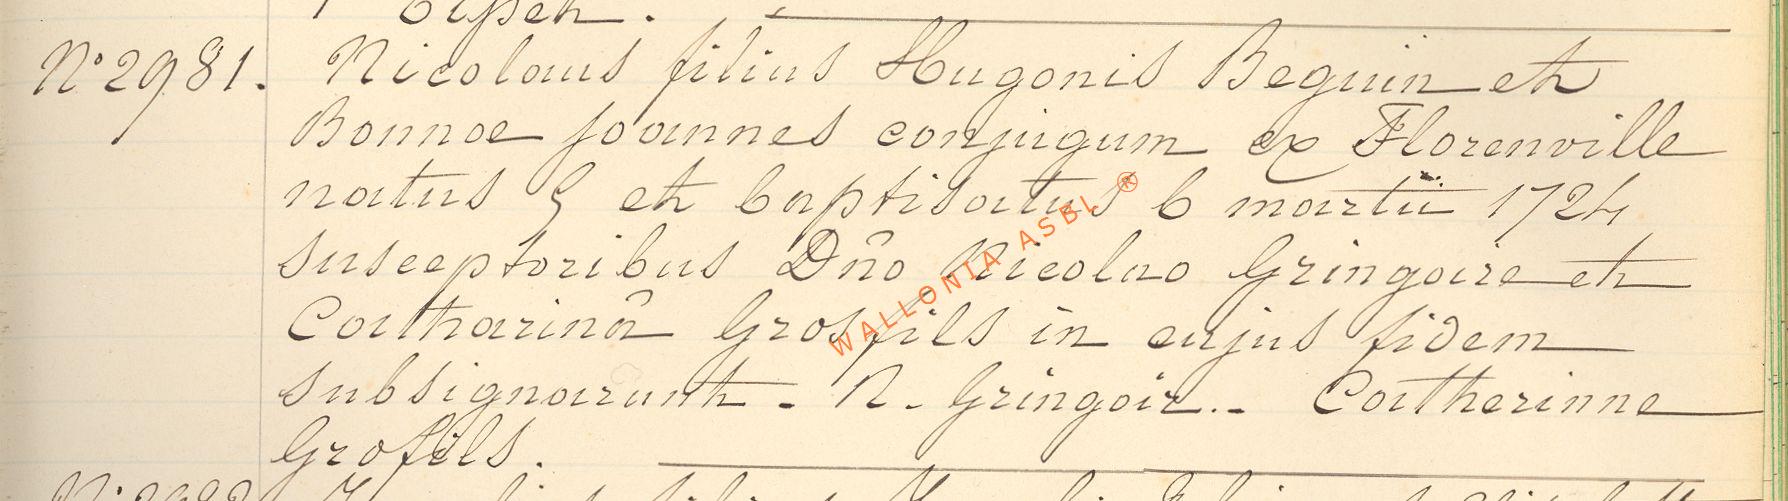 N° 2981. Nicolaus filius Hugonis Beguin et
Bonnae Joannes conjugum ex Florenville
natus 5 et baptisatus 6 martii 1724
susceptoribus Dño Nicolao Gringoire et
Catharinâ Grosfils in cujus fidem
subsignarunt - N. Gringoir.. - Catherinne
Grofils.
WALLONIA ASBL ®